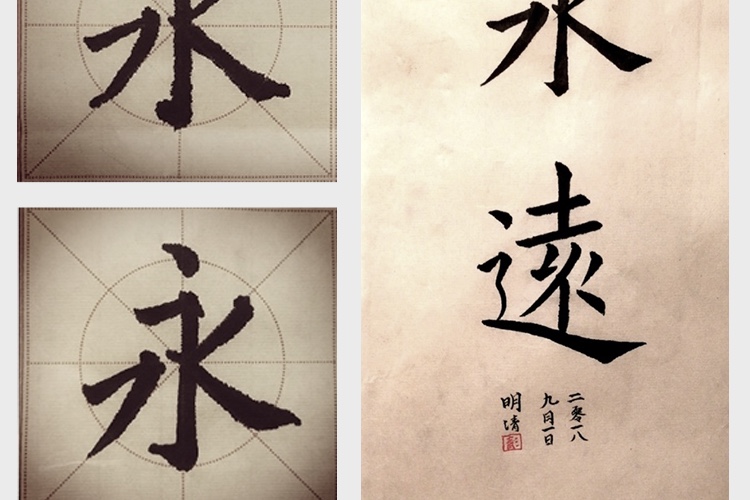 永
永
永遠
二零一八
九月一日
明清